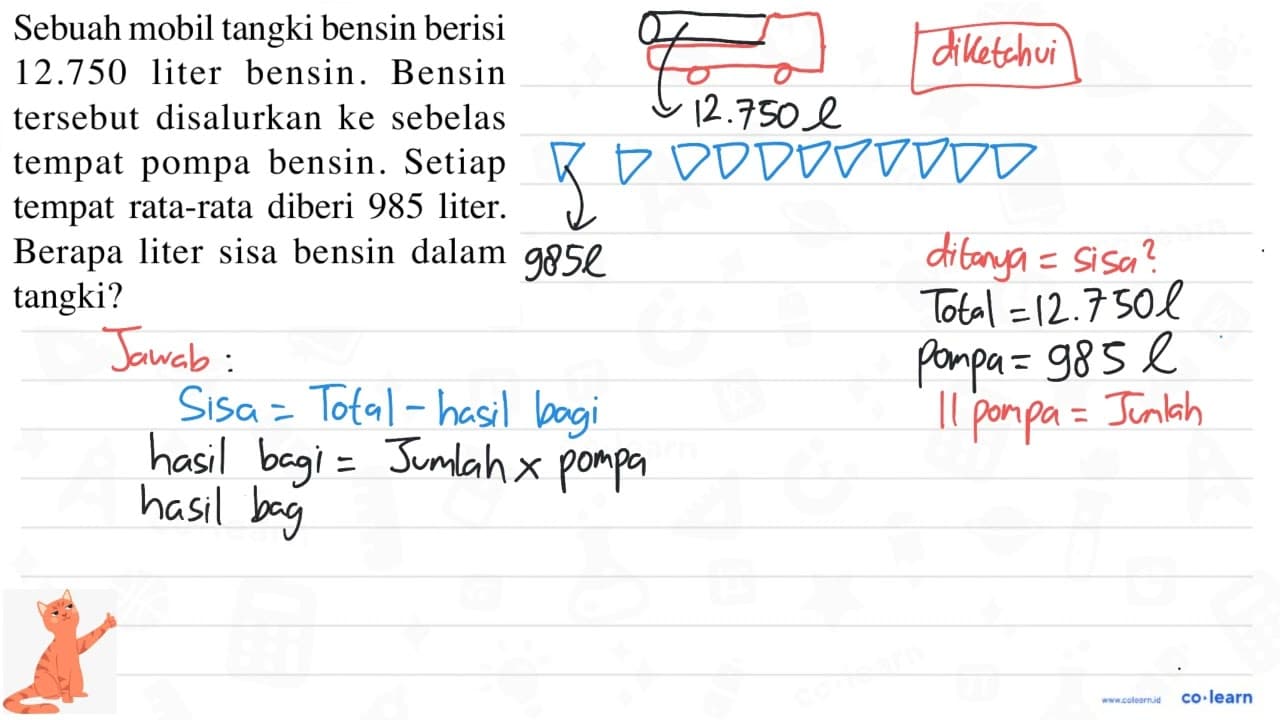 Sebuah mobil tangki bensin berisi
12.750 liter bensin. Bensin
tersebut disalurkan ke sebelas
tempat pompa bensin. Setiap
tempat rata-rata diberi 985 liter.
Berapa liter sisa bensin dalam
tangki?
diketahui
12.750 l
985 l
ditanya = sisa?
Total = 12.750 l
pompa = 985 l
11 pompa = Jumlah
Jawab :
Sisa = Total - hasil bagi
hasil bagi = Jumlah x pompa
hasil bag
www.colearn.id co·learn